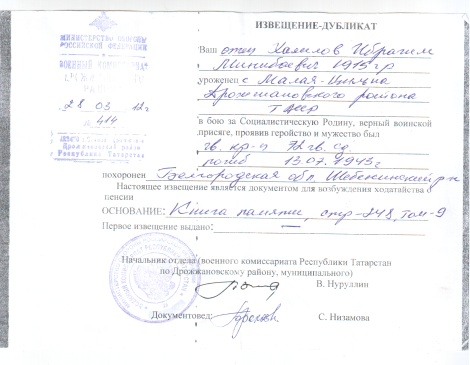 МИНИСТЕРСТВО ОБОРОНЫ
РОССИЙСКОЙ ФЕДЕРАЦИИ
ВОЕННЫЙ КОМИССАРИАТ
28 03 12 г
№ 414
Республики Татарстан
ИЗВЕЩЕНИЕ-ДУБЛИКАТ
Ваш отец Халилов Ибрагим
Минибаевич 1915 гр
уроженец с Малая-Цильна
Дрожжановского района
ТАССР
в бою за Социалистическую Родину, верный воинской
присяге, проявив геройство и мужество был
гв. кр-ц 72 гв. сд.
погиб 13.07.1943г
похоронен Белгородская обл. Шебекинский р-н
Настоящее извещение является документом для возбуждения ходатайства о
пенсии
ОСНОВАНИЕ: Книга памяти, стр-248, том-9
Первое извещение выдано: —
Начальник отдела (военного комиссариата Республики Татарстан
по Дрожжановскому району, муниципального)
В. Нуруллин
Документовед: С. Низамова